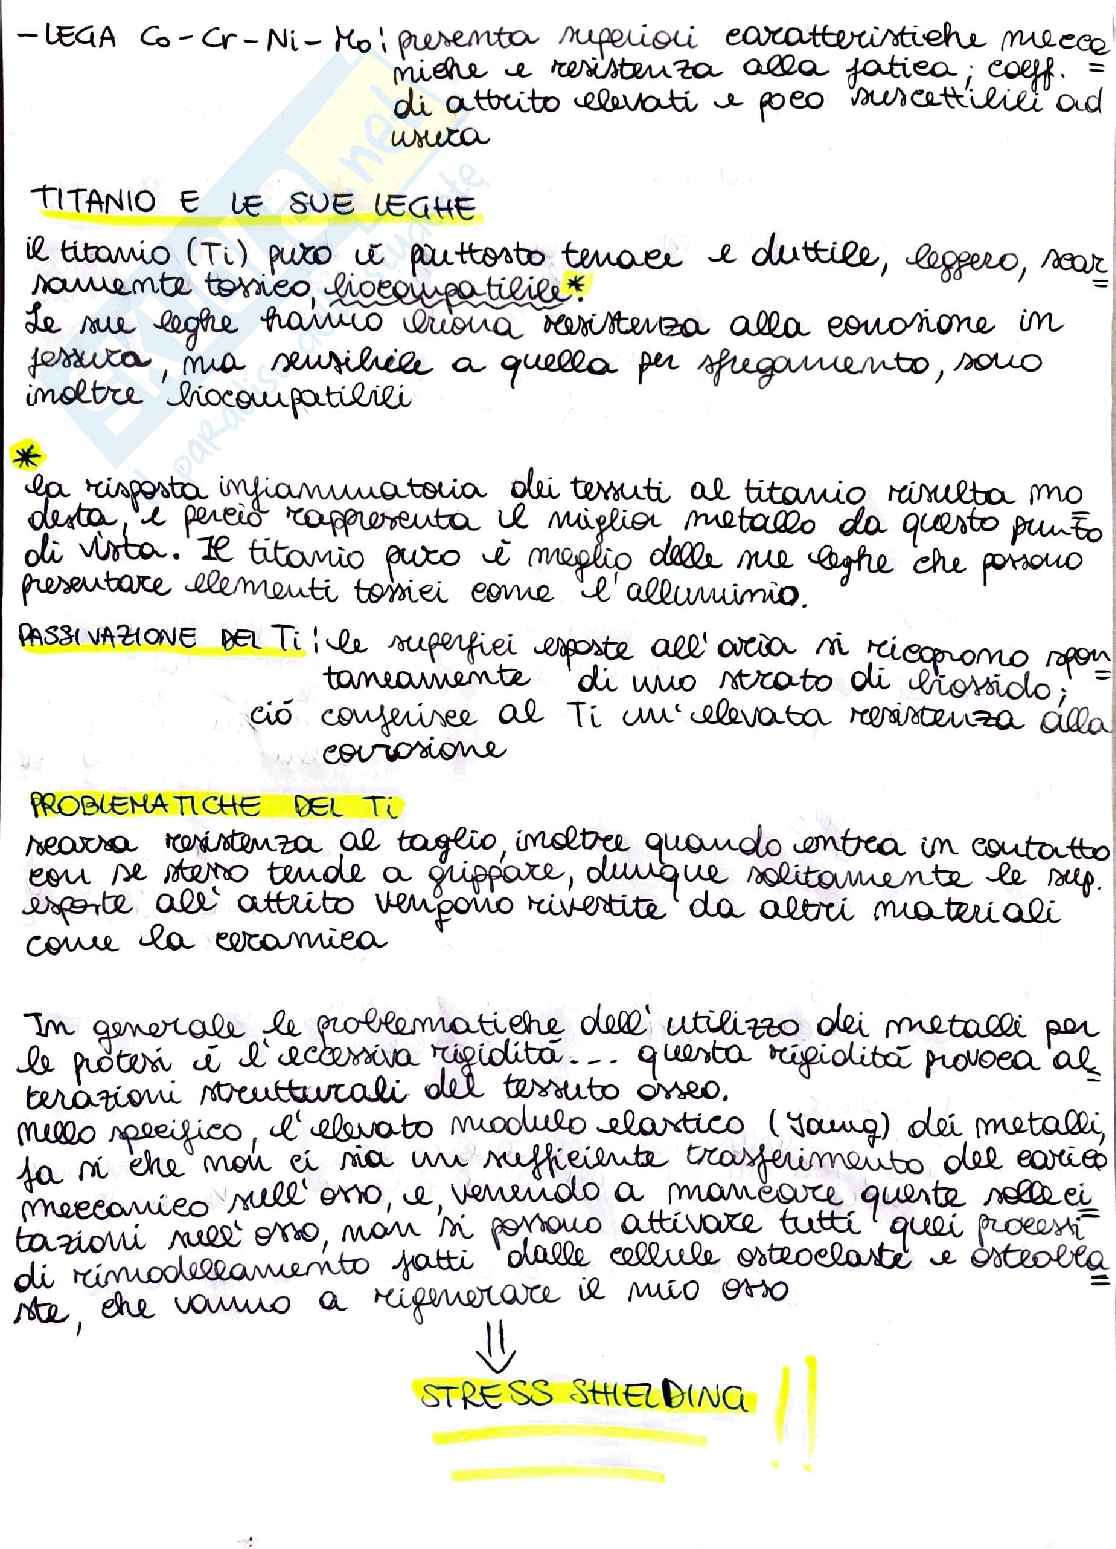 - LEGA Co-Cr-Ni-Mo: presenta superiori caratteristiche mecca
niche e resistenza alla fatica; coeff. =
di attrito elevati e poco suscettibili ad
usura
TITANIO E LE SUE LEGHE
il titanio (Ti) puro è piuttosto tenace e duttile, leggero, scar
samente tossico, biocompatibile*.
Le sue leghe hanno buona resistenza alla corrosione in
fessura, ma sensibile a quella per sfregamento, sono
inoltre biocompatibili
*
la risposta infiammatoria dei tessuti al titanio risulta mo
desta, e perciò rappresenta il miglior metallo da questo punto
di vista. Il titanio puro è meglio delle sue leghe che possono
presentare elementi tossici come l'alluminio.
PASSIVAZIONE DEL Ti: le superfici esposte all'aria si ricoprono spon
taneamente di uno strato di biossido;
ciò conferisce al Ti un'elevata resistenza alla
corrosione
PROBLEMATICHE DEL Ti
scarsa resistenza al taglio, inoltre quando entra in contatto
con se stesso tende a grippare, dunque solitamente le sup.
esposte all'attrito vengono rivestite da altri materiali
come la ceramica
In generale le problematiche dell'utilizzo dei metalli per
le protesi è l'eccessiva rigidità... questa rigidità provoca al
terazioni strutturali del tessuto osseo.
Nello specifico, l'elevato modulo elastico (Young) dei metalli,
fa si che non ci sia un sufficiente trasferimento del carico
meccanico sull'osso, e, venendo a mancare queste solleci
tazioni sull'osso, non si possono attivare tutti quei processi
di rimodellamento fatti dalle cellule osteoclaste e osteobla
ste, che vanno a rigenerare il mio osso
⇓
STRESS SHIELDING !!